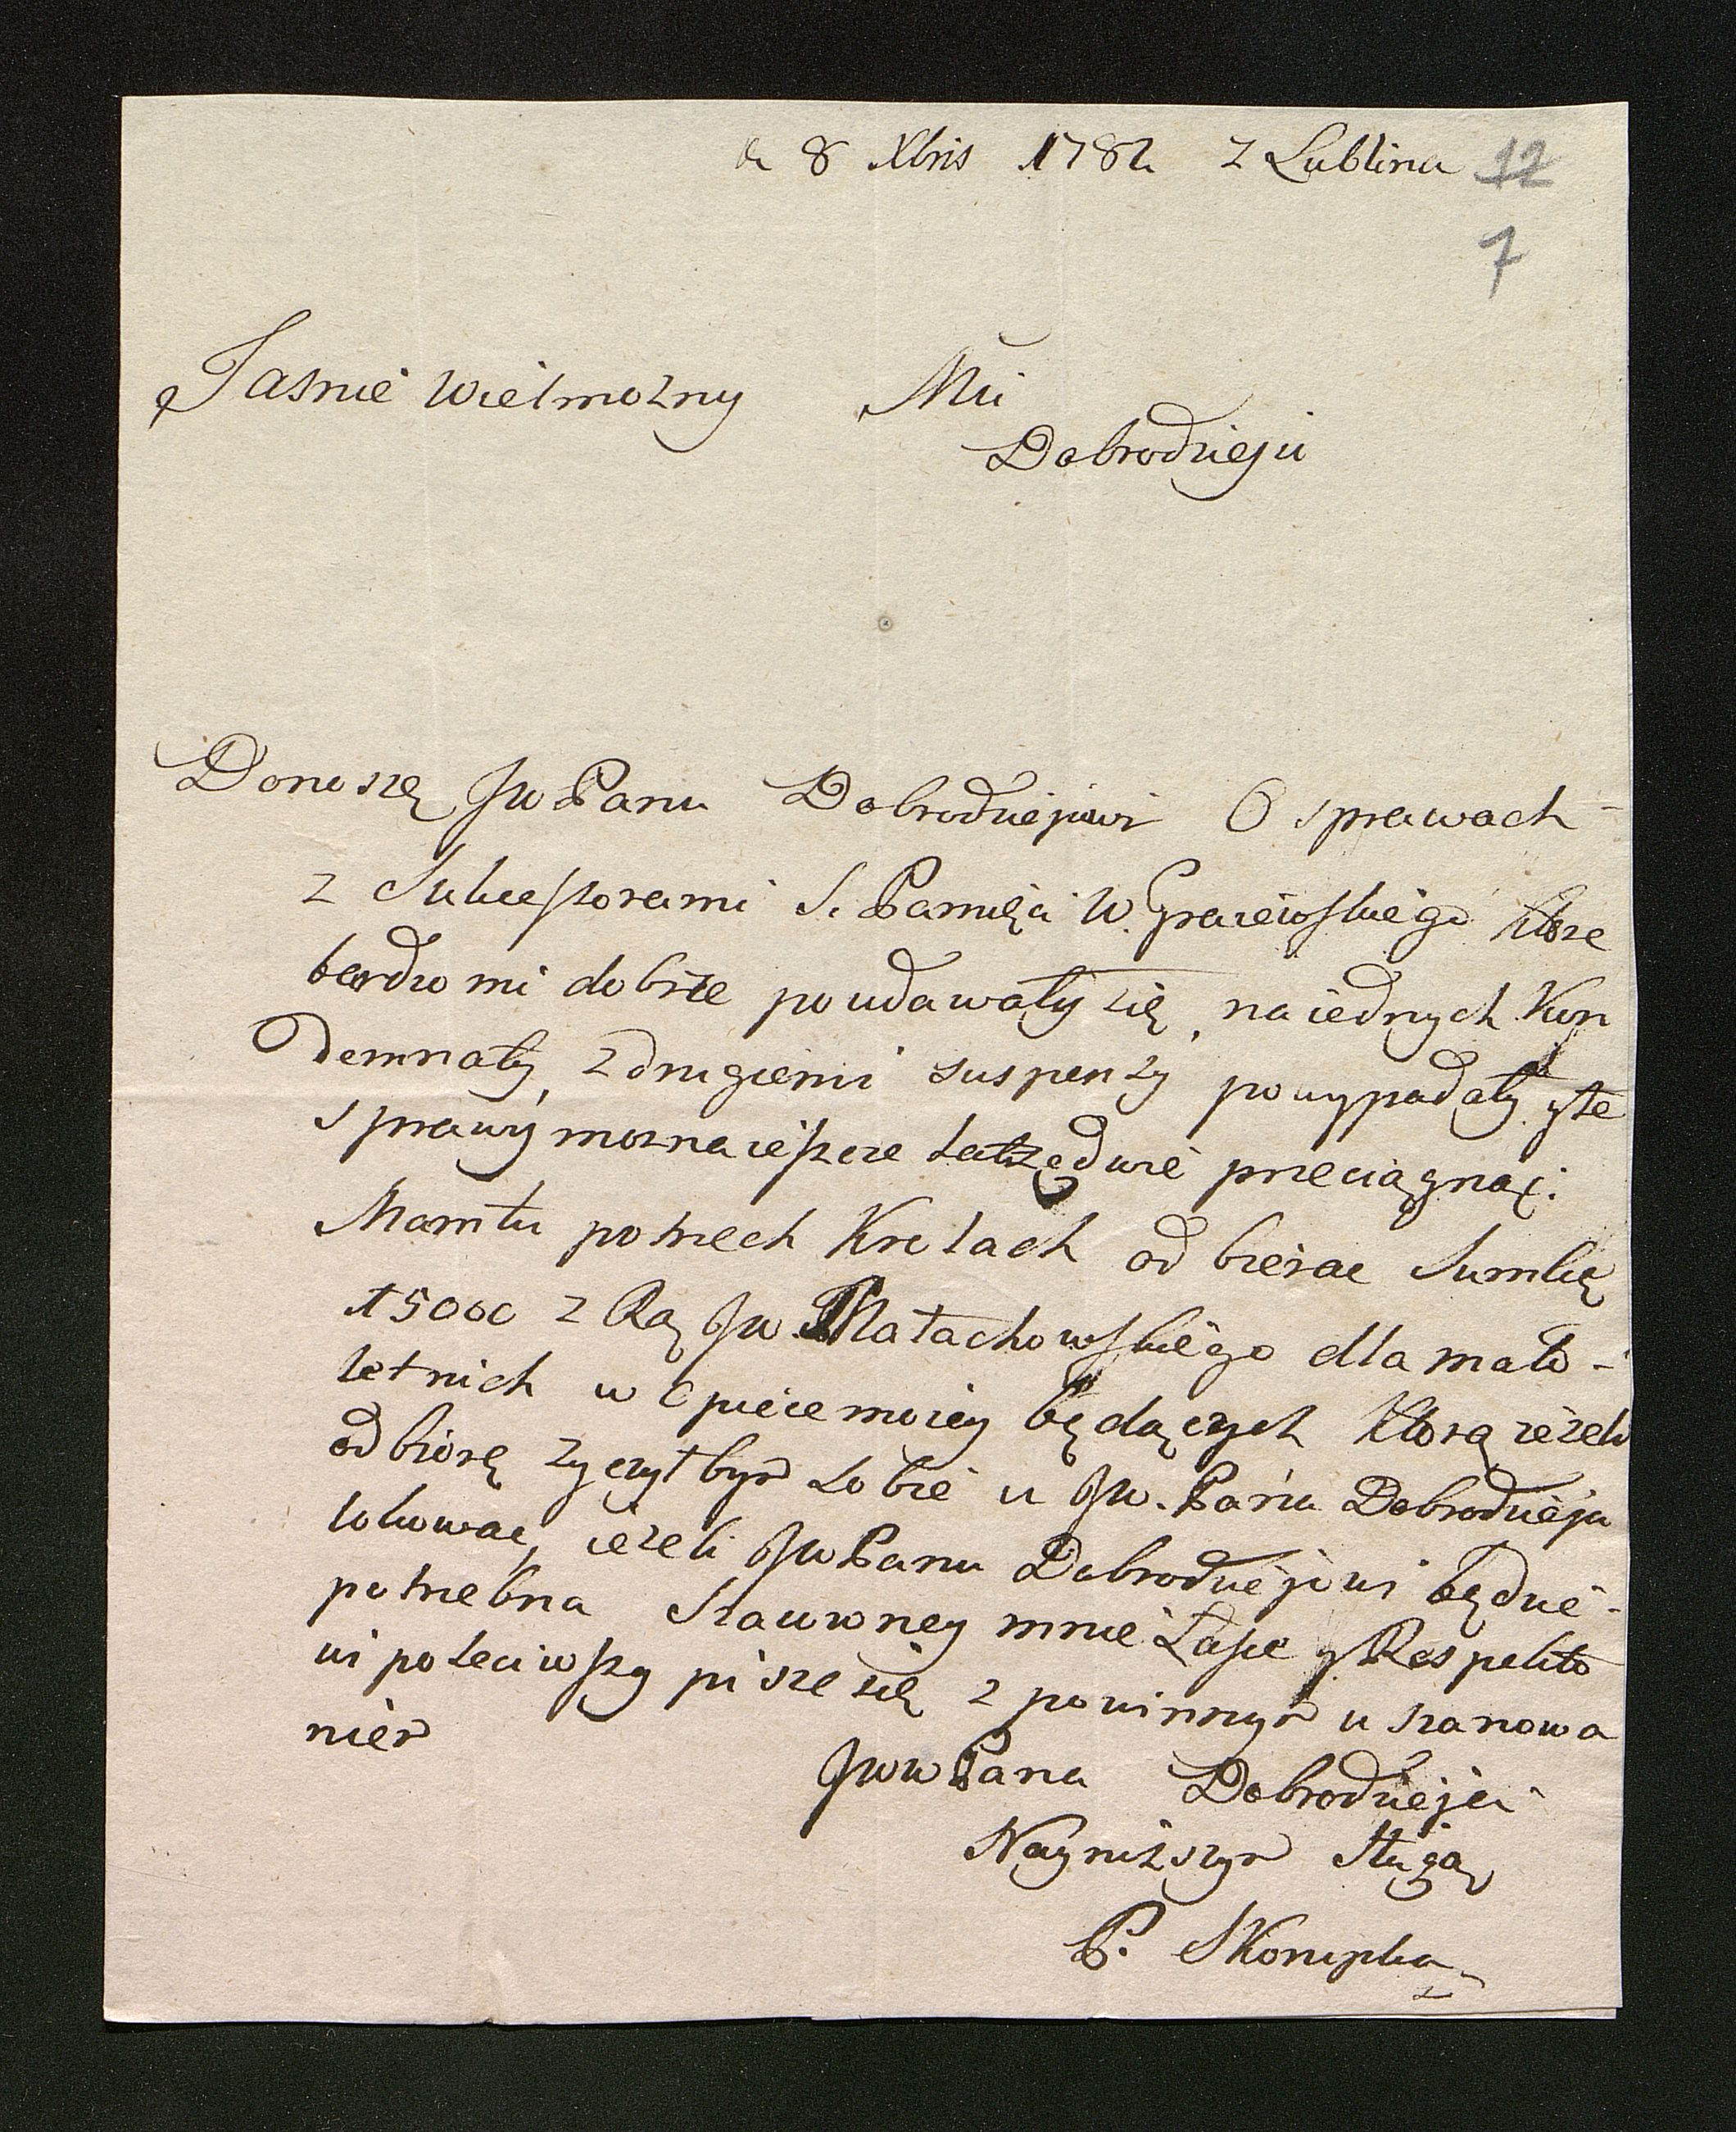 8 Xbris 1782 z Lublina 12
7
Jasnie Wielmozny Mci
Dobrodzieju
Donoszę JwPanu Dobrodziejowi O sprawach
z Sukcessorami S. Pamięci W. Graiewskiego ktore
bardzo mi dobrze poudawały się, na iednych Kon
demnaty, z drugiemi suspenzy powypadały, y te
sprawy mozna ieszcze przeciągnąć.
Mam tu po trzech Kretach odbierac Summę
15000 z Rąk Jw. Małachowskiego dla mało-
letnich w Opiece moiey będących ktorą iezeli
odbiorę zyczyłbym sobie u Jw. Pana Dobrodzieja
lokowac, iezeli JwPanu Dobrodziejowi będzie
potrzebna Szacowney mnie Łasce y Respekto
wi poleciwszy pisze się z powinnym uszanowa
niem
JwwPana Dobrodzieja
Nayniższym sługą
P. Skorupka